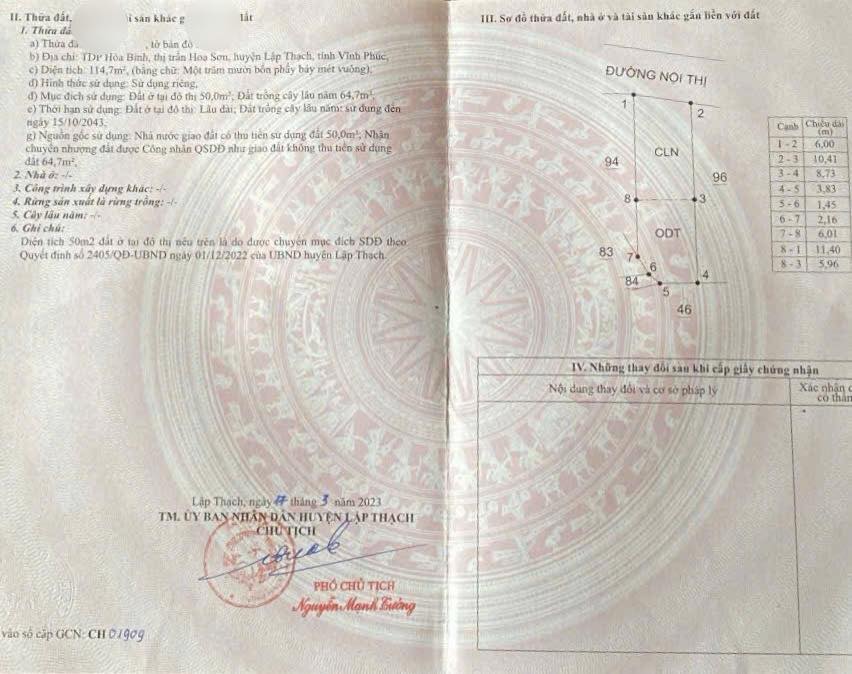 II. Thửa đất, i sản khác g lất
1. Thửa đấ
a) Thửa đấ , tờ bản đồ
b) Địa chỉ: TDP Hòa Bình, thị trấn Hoa Sơn, huyện Lập Thạch, tỉnh Vĩnh Phúc,
c) Diện tích: 114,7m², (bằng chữ: Một trăm mười bốn phẩy bảy mét vuông),
d) Hình thức sử dụng: Sử dụng riêng,
đ) Mục đích sử dụng: Đất ở tại đô thị 50,0m²; Đất trồng cây lâu năm 64,7m²,
e) Thời hạn sử dụng: Đất ở tại đô thị: Lâu dài; Đất trồng cây lâu năm: sử dụng đến
ngày 15/10/2043,
g) Nguồn gốc sử dụng: Nhà nước giao đất có thu tiền sử dụng đất 50,0m²; Nhận
chuyển nhượng đất được Công nhận QSDĐ như giao đất không thu tiền sử dụng
đất 64,7m²,
2. Nhà ở: -/-
3. Công trình xây dựng khác: -/-
4. Rừng sản xuất là rừng trồng: -/-
5. Cây lâu năm: -/-
6. Ghi chú:
Diện tích 50m2 đất ở tại đô thị nêu trên là do được chuyển mục đích SDĐ theo
Quyết định số 2405/QĐ-UBND ngày 01/12/2022 của UBND huyện Lập Thạch.
Lập Thạch, ngày 17 tháng 3 năm 2023
TM. ỦY BAN NHÂN DÂN HUYỆN LẬP THẠCH
CHỦ TỊCH
PHÓ CHỦ TỊCH
Nguyễn Mạnh Tường
vào sổ cấp GCN: CH 01909
III. Sơ đồ thửa đất, nhà ở và tài sản khác gắn liền với đất
ĐƯỜNG NỘI THỊ
1
2
CLN
94
96
8
3
ODT
83
7
6
84
5
4
46
Cạnh Chiều dài (m)
1 - 2 6,00
2 - 3 10,41
3 - 4 8,73
4 - 5 3,83
5 - 6 1,45
6 - 7 2,16
7 - 8 6,01
8 - 1 11,40
8 - 3 5,96
IV. Những thay đổi sau khi cấp giấy chứng nhận
Nội dung thay đổi và cơ sở pháp lý
Xác nhận c
có thẩm